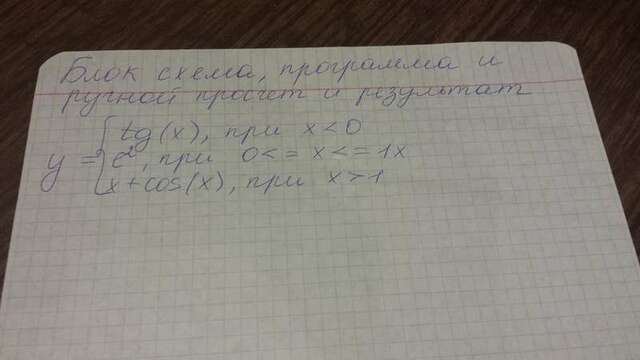 Блок схема, программа и
ручной просчет и результат
y = { tg(x), при x<0
e², при 0<=x<=1x
x+cos(x), при x>1